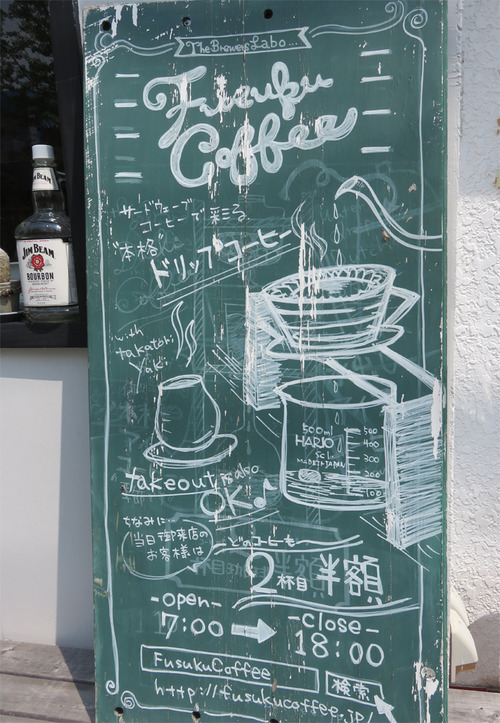 The Brewers Labo...
Fusuku
Coffee
サードウェーブ
コーヒーで彩る
"本格"
ドリップコーヒー
with
takatori
Yaki
JIM BEAM
BOURBON
500ml
HARIO
MADE IN JAPAN
500
400
300
200
100
takeout is also
OK♪
ちなみに…
当日御来店の
お客様は
どのコーヒーも
2杯目半額
-open-
7:00
-close-
18:00
FusukuCoffee
検索
http://fusukucoffee.jp